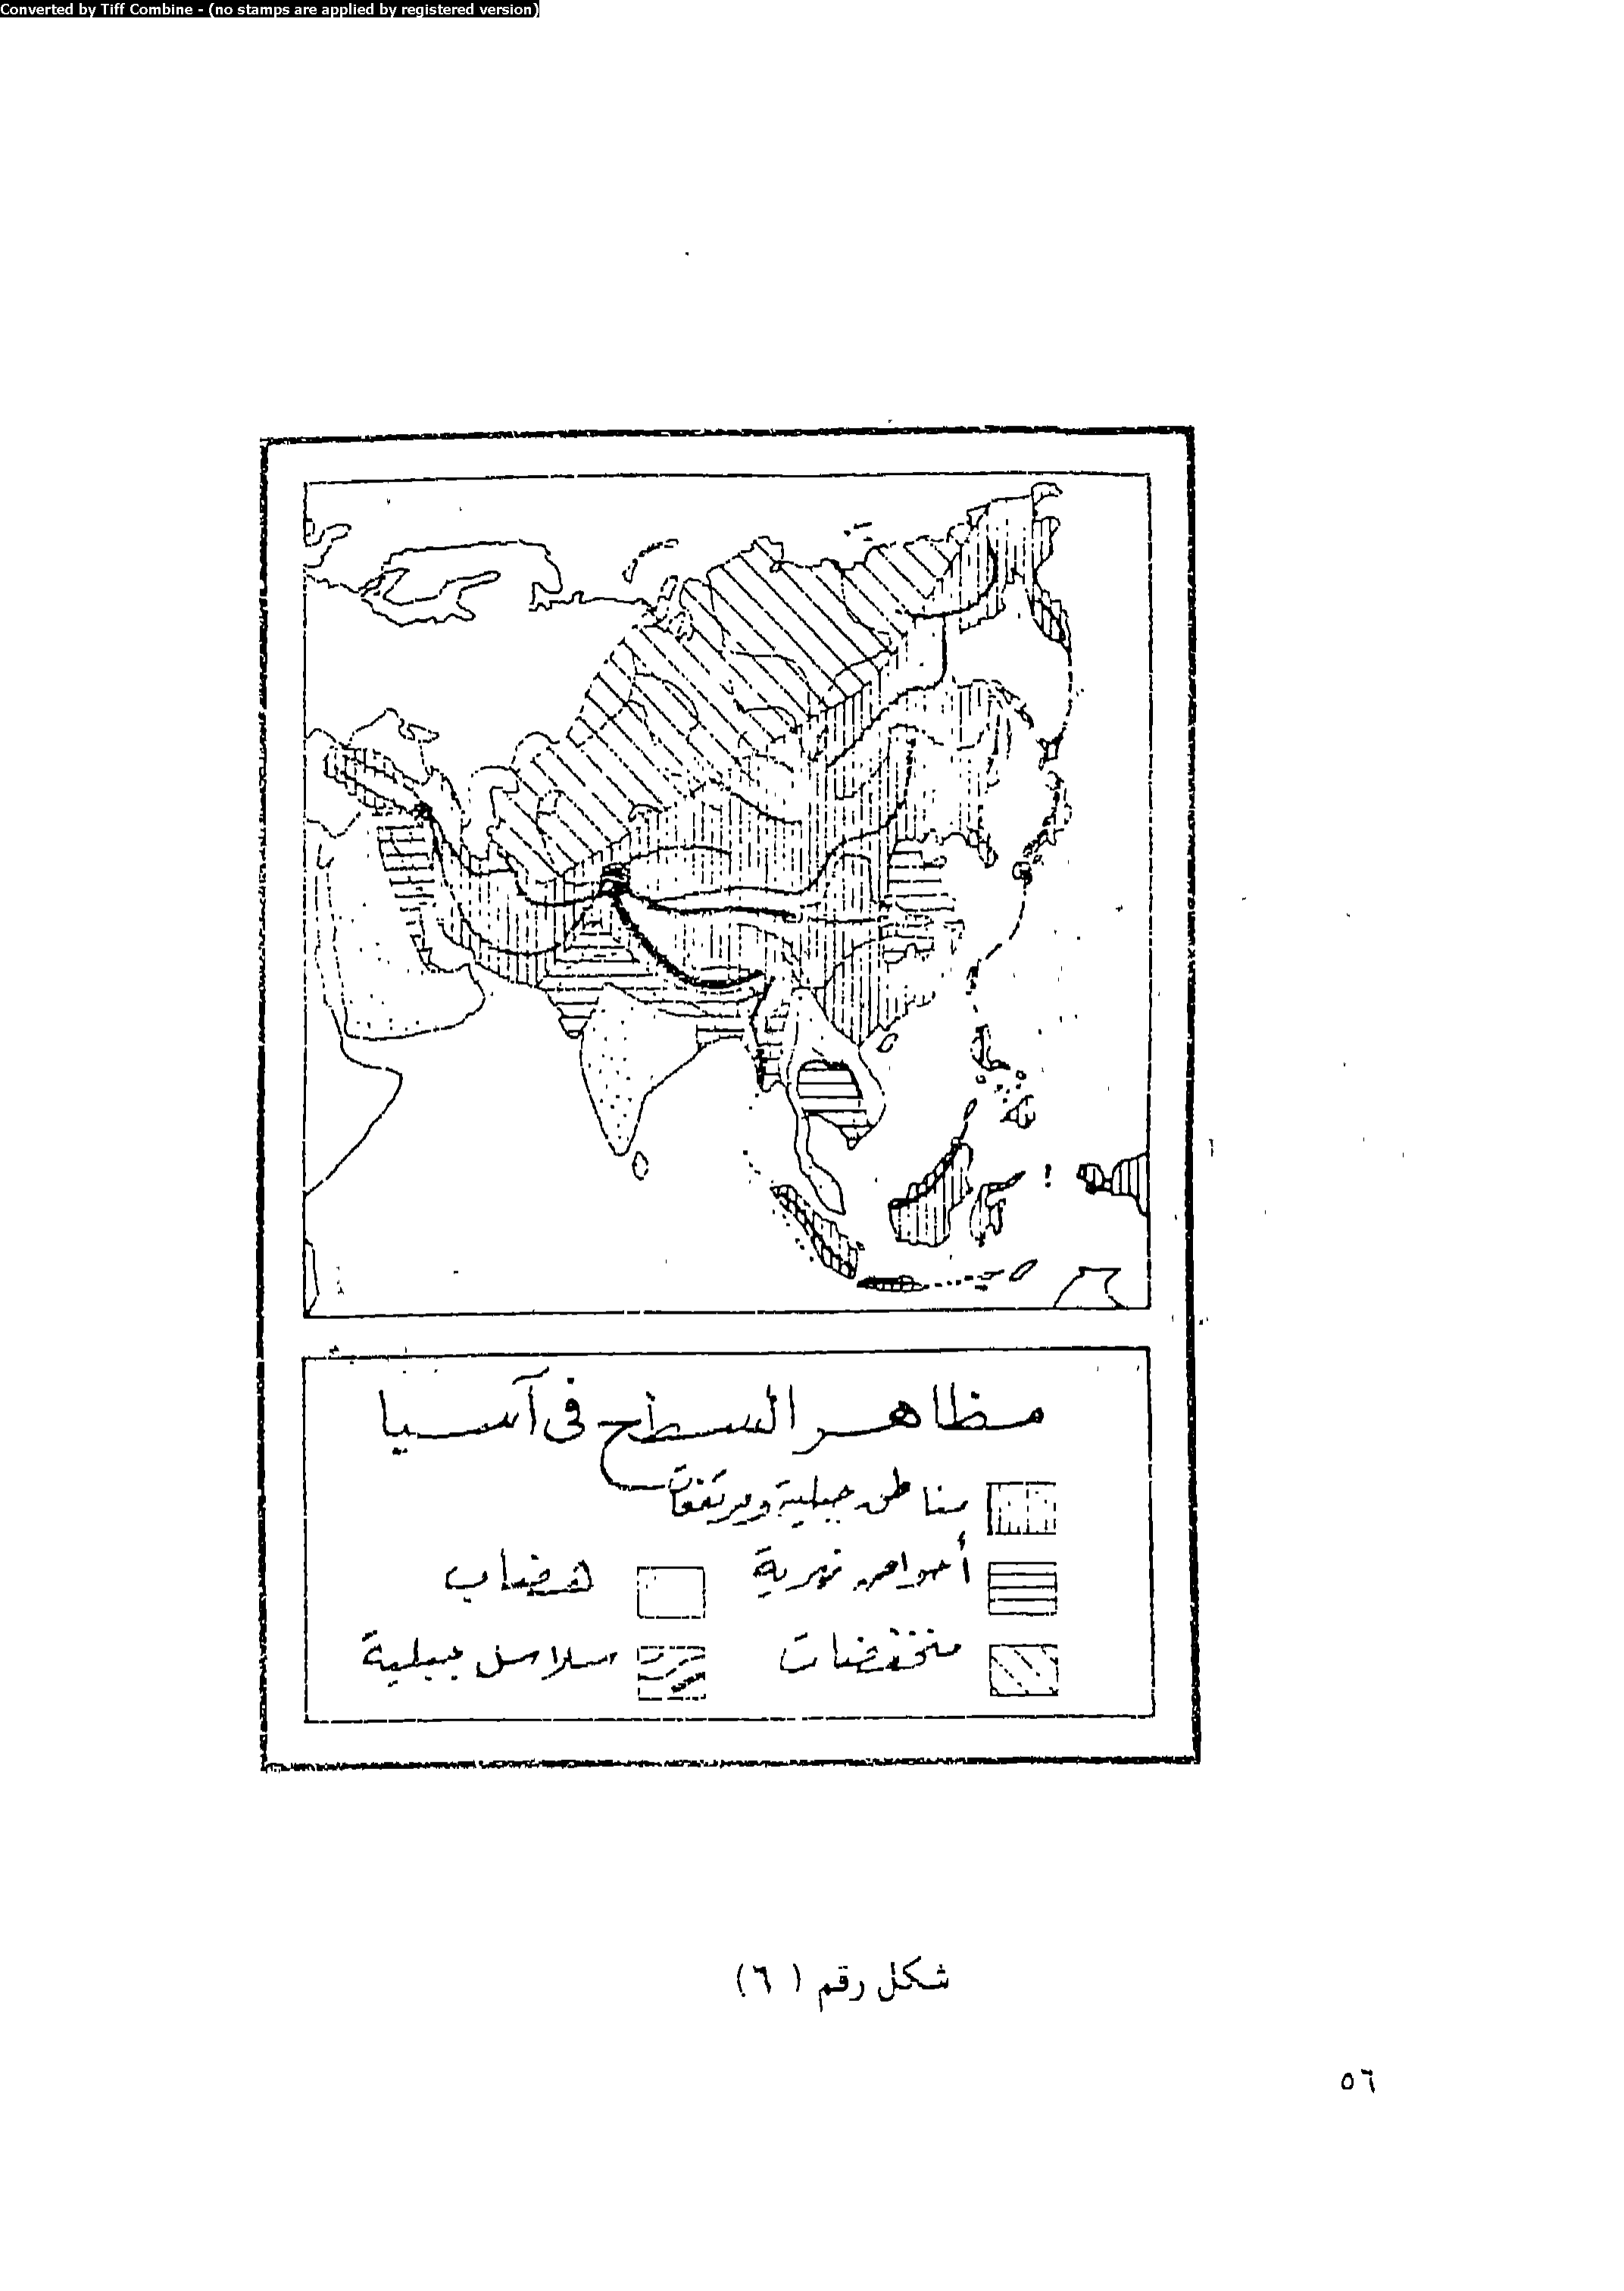 Converted by Tiff Combine - (no stamps are applied by registered version)
مظاهر السطح فى آسيا
مناطق جبلية ومرتفعات
أحواض نهرية
هضاب
منخفضات
سلاسل جبلية
شكل رقم (٦)
٥٦